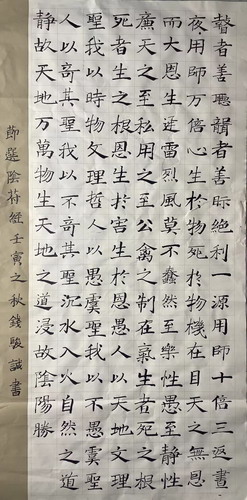 瞽者善聽聾者善視絕利一源用師十倍三返晝
夜用師万倍心生於物死於物機在目天之無恩
而大恩生迅雷烈風莫不蠢然至樂性愚至靜性
廉天之至私用之至公禽之制在氣生者死之根
死者生之根恩生於害生於恩愚人以天地文理
聖我以時物文理哲人以愚虞聖我以不愚虞聖
人以奇其聖我以不奇其聖沉水入火自然之道
靜故天地万萬物生天地之道浸故陰陽勝
節選陰符經壬寅之秋錢駿誠書